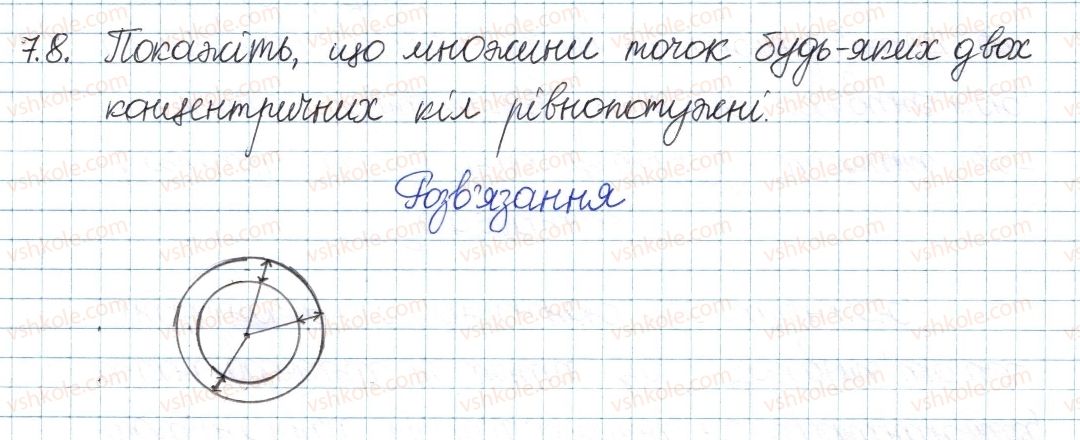 7.8. Покажіть, що множини точок будь-яких двох
концентричних кіл рівнопотужні.
Розв'язання
vshkole.com